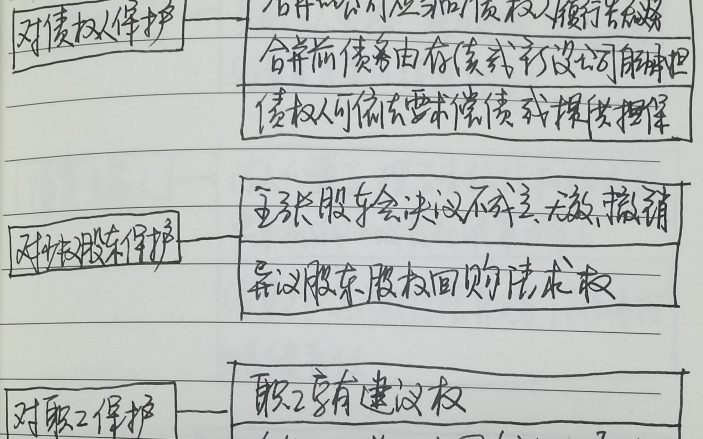 对债权人保护
合并的公司应当向债权人履行告知义务
合并前债务由存续或新设公司自承担
债权人可依法要求偿债或提供担保
对少权股东保护
主张股东会决议不成立、无效、撤销
异议股东股权回购请求权
对职工保护
职工享有建议权